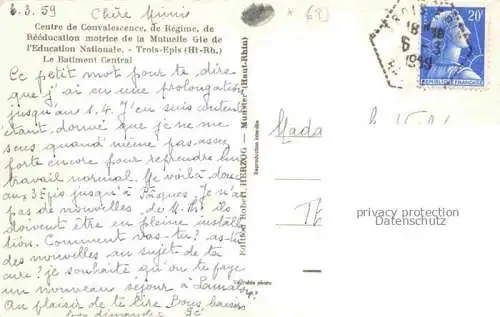 6.3.59 Chère Mimie
Centre de Convalescence, de Régime, de
Rééducation motrice de la Mutuelle Gle de
l'Education Nationale. - Trois-Epis (Ht-Rh.)
Le Batiment Central
Ce petit mot pour te dire
que j'ai eu une prolongation
jusqu'au 1.4. J'en suis contente
étant donné que je ne me
sens quand même pas assez
forte encore pour reprendre un
travail normal. Me voilà donc
aux 3 Epis jusqu'à Pâques. Je n'ai
pas de nouvelles de M. R. ils
doivent être en pleine install-
tion. Comment vas-tu? as-tu
des nouvelles au sujet de ta
cure? je souhaite qu'on te paye
un nouveau séjour à Lamalou
Au plaisir de te lire Bons baisers
Edition Robert HERZOG - Munster (Haut-Rhin)
Reproduction interdite
Véritable photo
* 681
TROIS
18
6-3
1959
20F
REPUBLIQUE FRANÇAISE
Mada
TE
privacy protection
Datenschutz